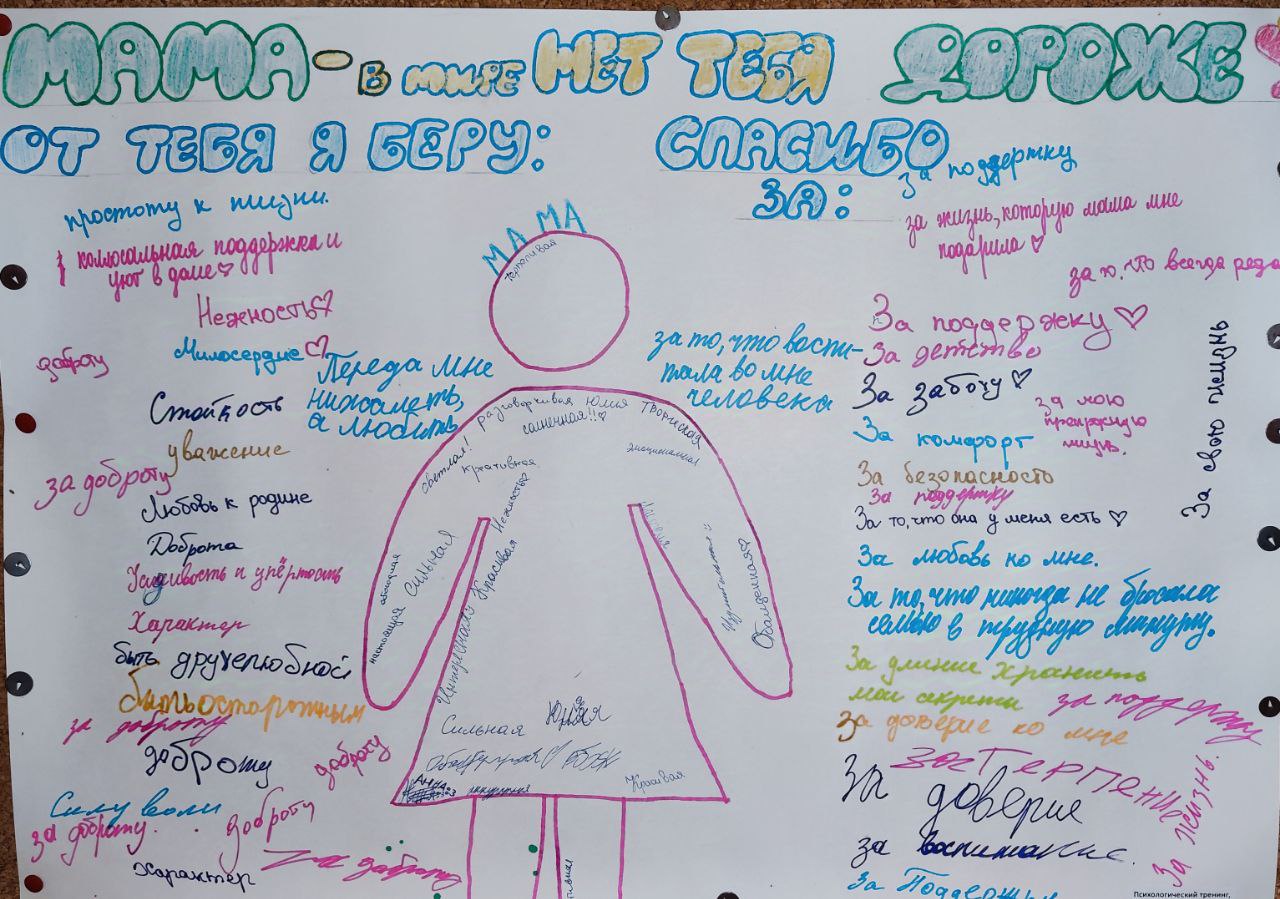 МАМА - В МИРЕ НЕТ ТЕБЯ ДОРОЖЕ
ОТ ТЕБЯ Я БЕРУ:
простоту к жизни.
коллосальная поддержка и
уют в доме
Нежность
Милосердие
доброту
Переда мне
Стойкость
а любить
уважение
за доброту
Любовь к родине
Доброта
Усидивость и упёртость
Характер
быть дружелюбной
быть осторожным
за доброту
доброту
доброту
Силу воли
доброту
за доброту.
Характер
за доброту
МАМА
терпеливая
разговорчивая Юлия творческая
солнечная!!
светлая!
креативная
эмоциональная
Нежность
сильная
настоящая
Красивая
Интересная
Обалденная
Сильная
Юлия
Красивая
АННА
СПАСИБО
ЗА:
За поддержку
за жизнь, которую мама мне
подарила
за то, что всегда рядо
за то, что воспи-
тала во мне
человека
За поддержку
За детство
За заботу
за мою
прекрасную
жизнь.
За комфорт
За безопасность
За поддержку
За то, что она у меня есть
За свою жизнь
За любовь ко мне.
За то, что никогда не бросала
семью в трудную минуту.
За умение хранить
мои секреты
за поддержку
За доверие ко мне
за терпение
За доверие
За жизнь.
за воспитание.
За Поддержку
Психологический тренинг,